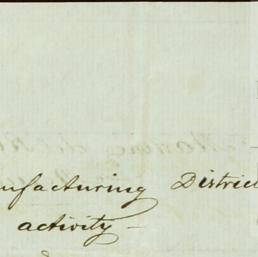 ufacturing District
activity —